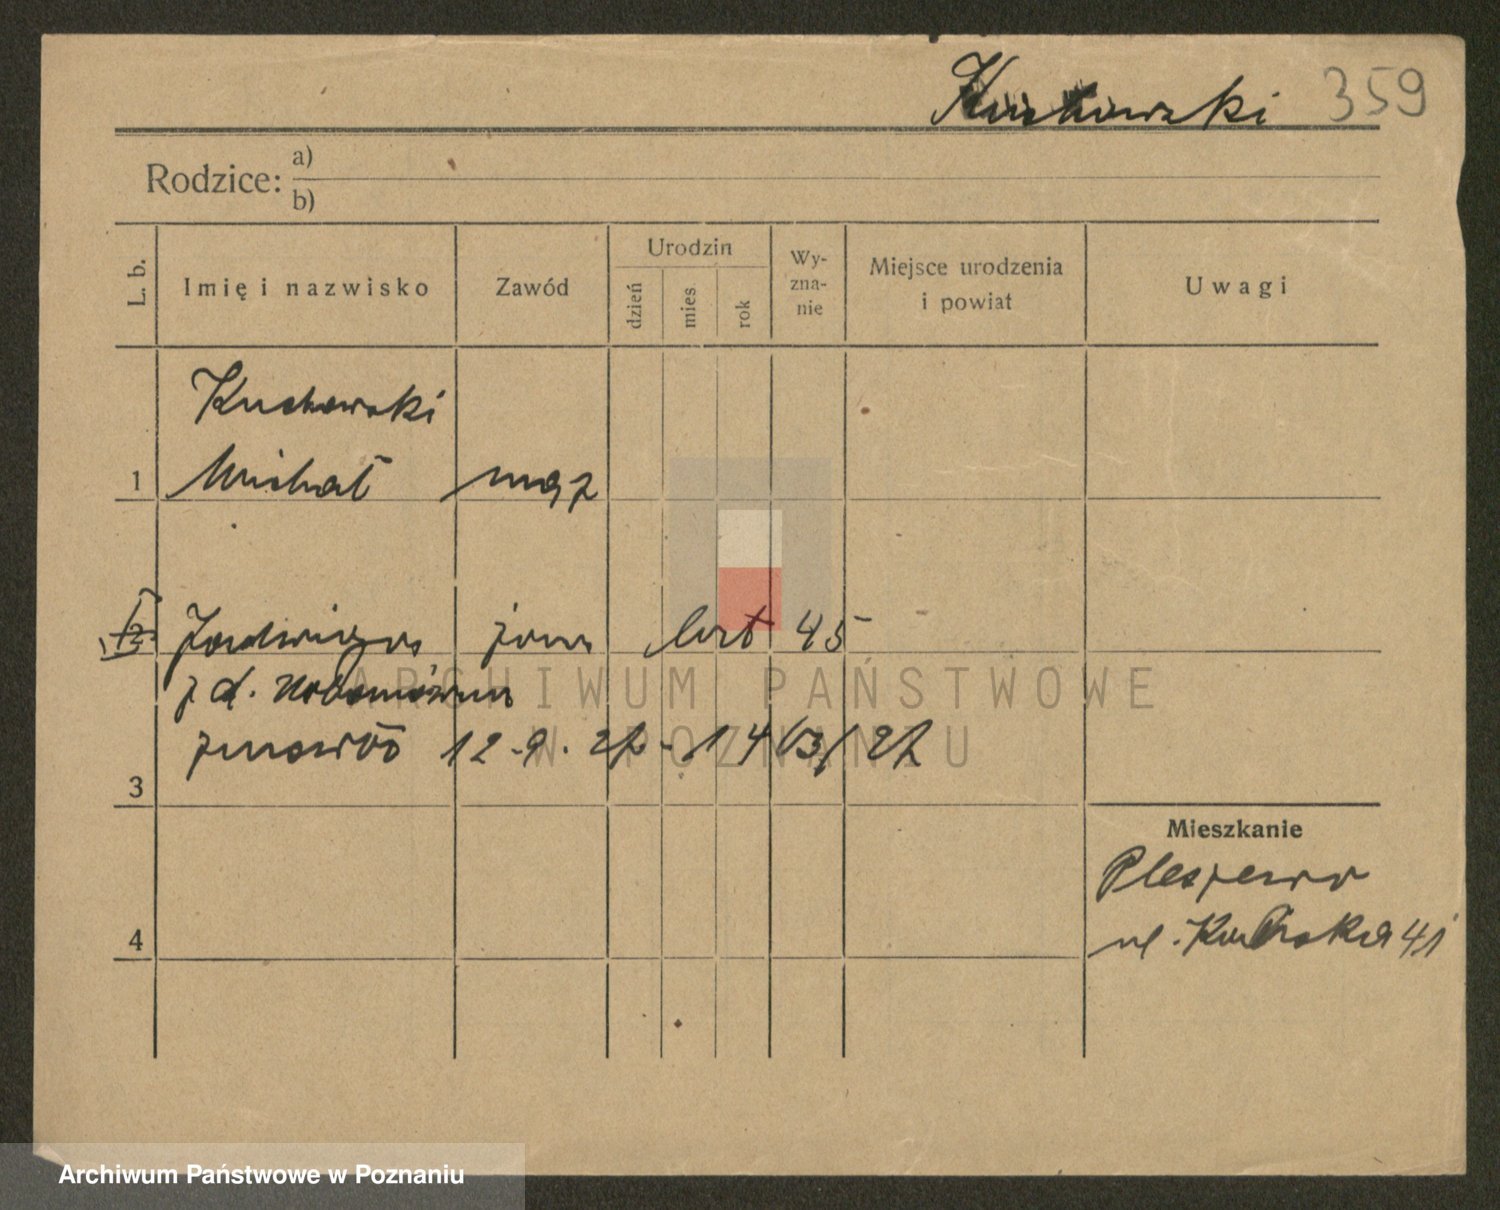 Kuchowski 359
Rodzice: a)
b)
L. b. Imię i nazwisko Zawód Urodzin dzień mies. rok Wy-zna-nie Miejsce urodzenia i powiat Uwagi
Kuchowski
1 Michał mąż
2 Jadwiga żona lat 45
z d.
12.9.27 - 1463/27
3
Mieszkanie
Pleszew
4 ul. 41
ARCHIWUM PAŃSTWOWE
W POZNANIU
Archiwum Państwowe w Poznaniu